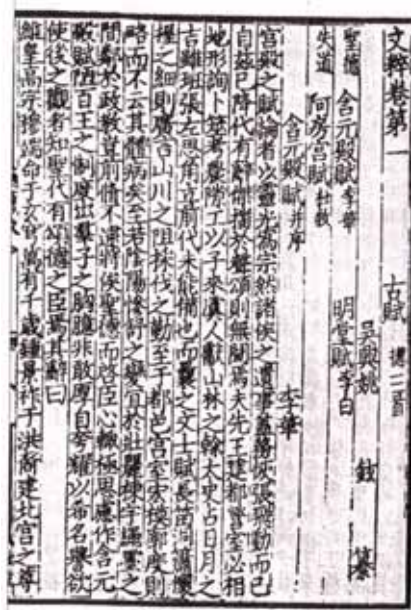 文粹卷第一 古賦
吳興姚 鉉 纂
聖德 含元殿賦李華 明堂賦李白
失道 阿房宮賦杜牧
含元殿賦并序 李華
宮殿之賦論者以靈光為宗然諸侯之遺事蓋務恢張飛動而已
自茲已降代有辭傑播於聲頌則無聞焉夫先王建都營室必相
地形詢卜筮考農隙工以子來虞人獻山林之榦太史占日月之
吉雖班張左思角立前代未能備也而曩之文士賦長笛洞簫懷
握之細則廣言山川之阻採伐之勤至于都邑宮室宏模廓度則
略而不云其體病矣至若陰陽慘舒之變宜於壯麗棟宇繩墨之
間鄰於政教豈前脩不逮將俟聖德而啓臣心輒極思慮作含元
殿賦陋百王之制度出羣子之胸臆非敢厚自夸耀以希名譽欲
使後之觀者知聖代有頌德之臣焉其辭曰
維皇高宗命于玄穹萬有千歲鍾景祚于洪裔建北宮之尊